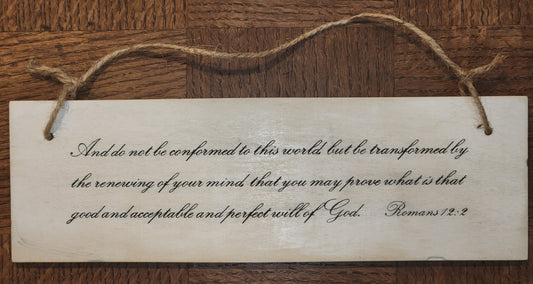 And do not be conformed to this world, but be transformed by
the renewing of your mind, that you may prove what is that
good and acceptable and perfect will of God. Romans 12:2